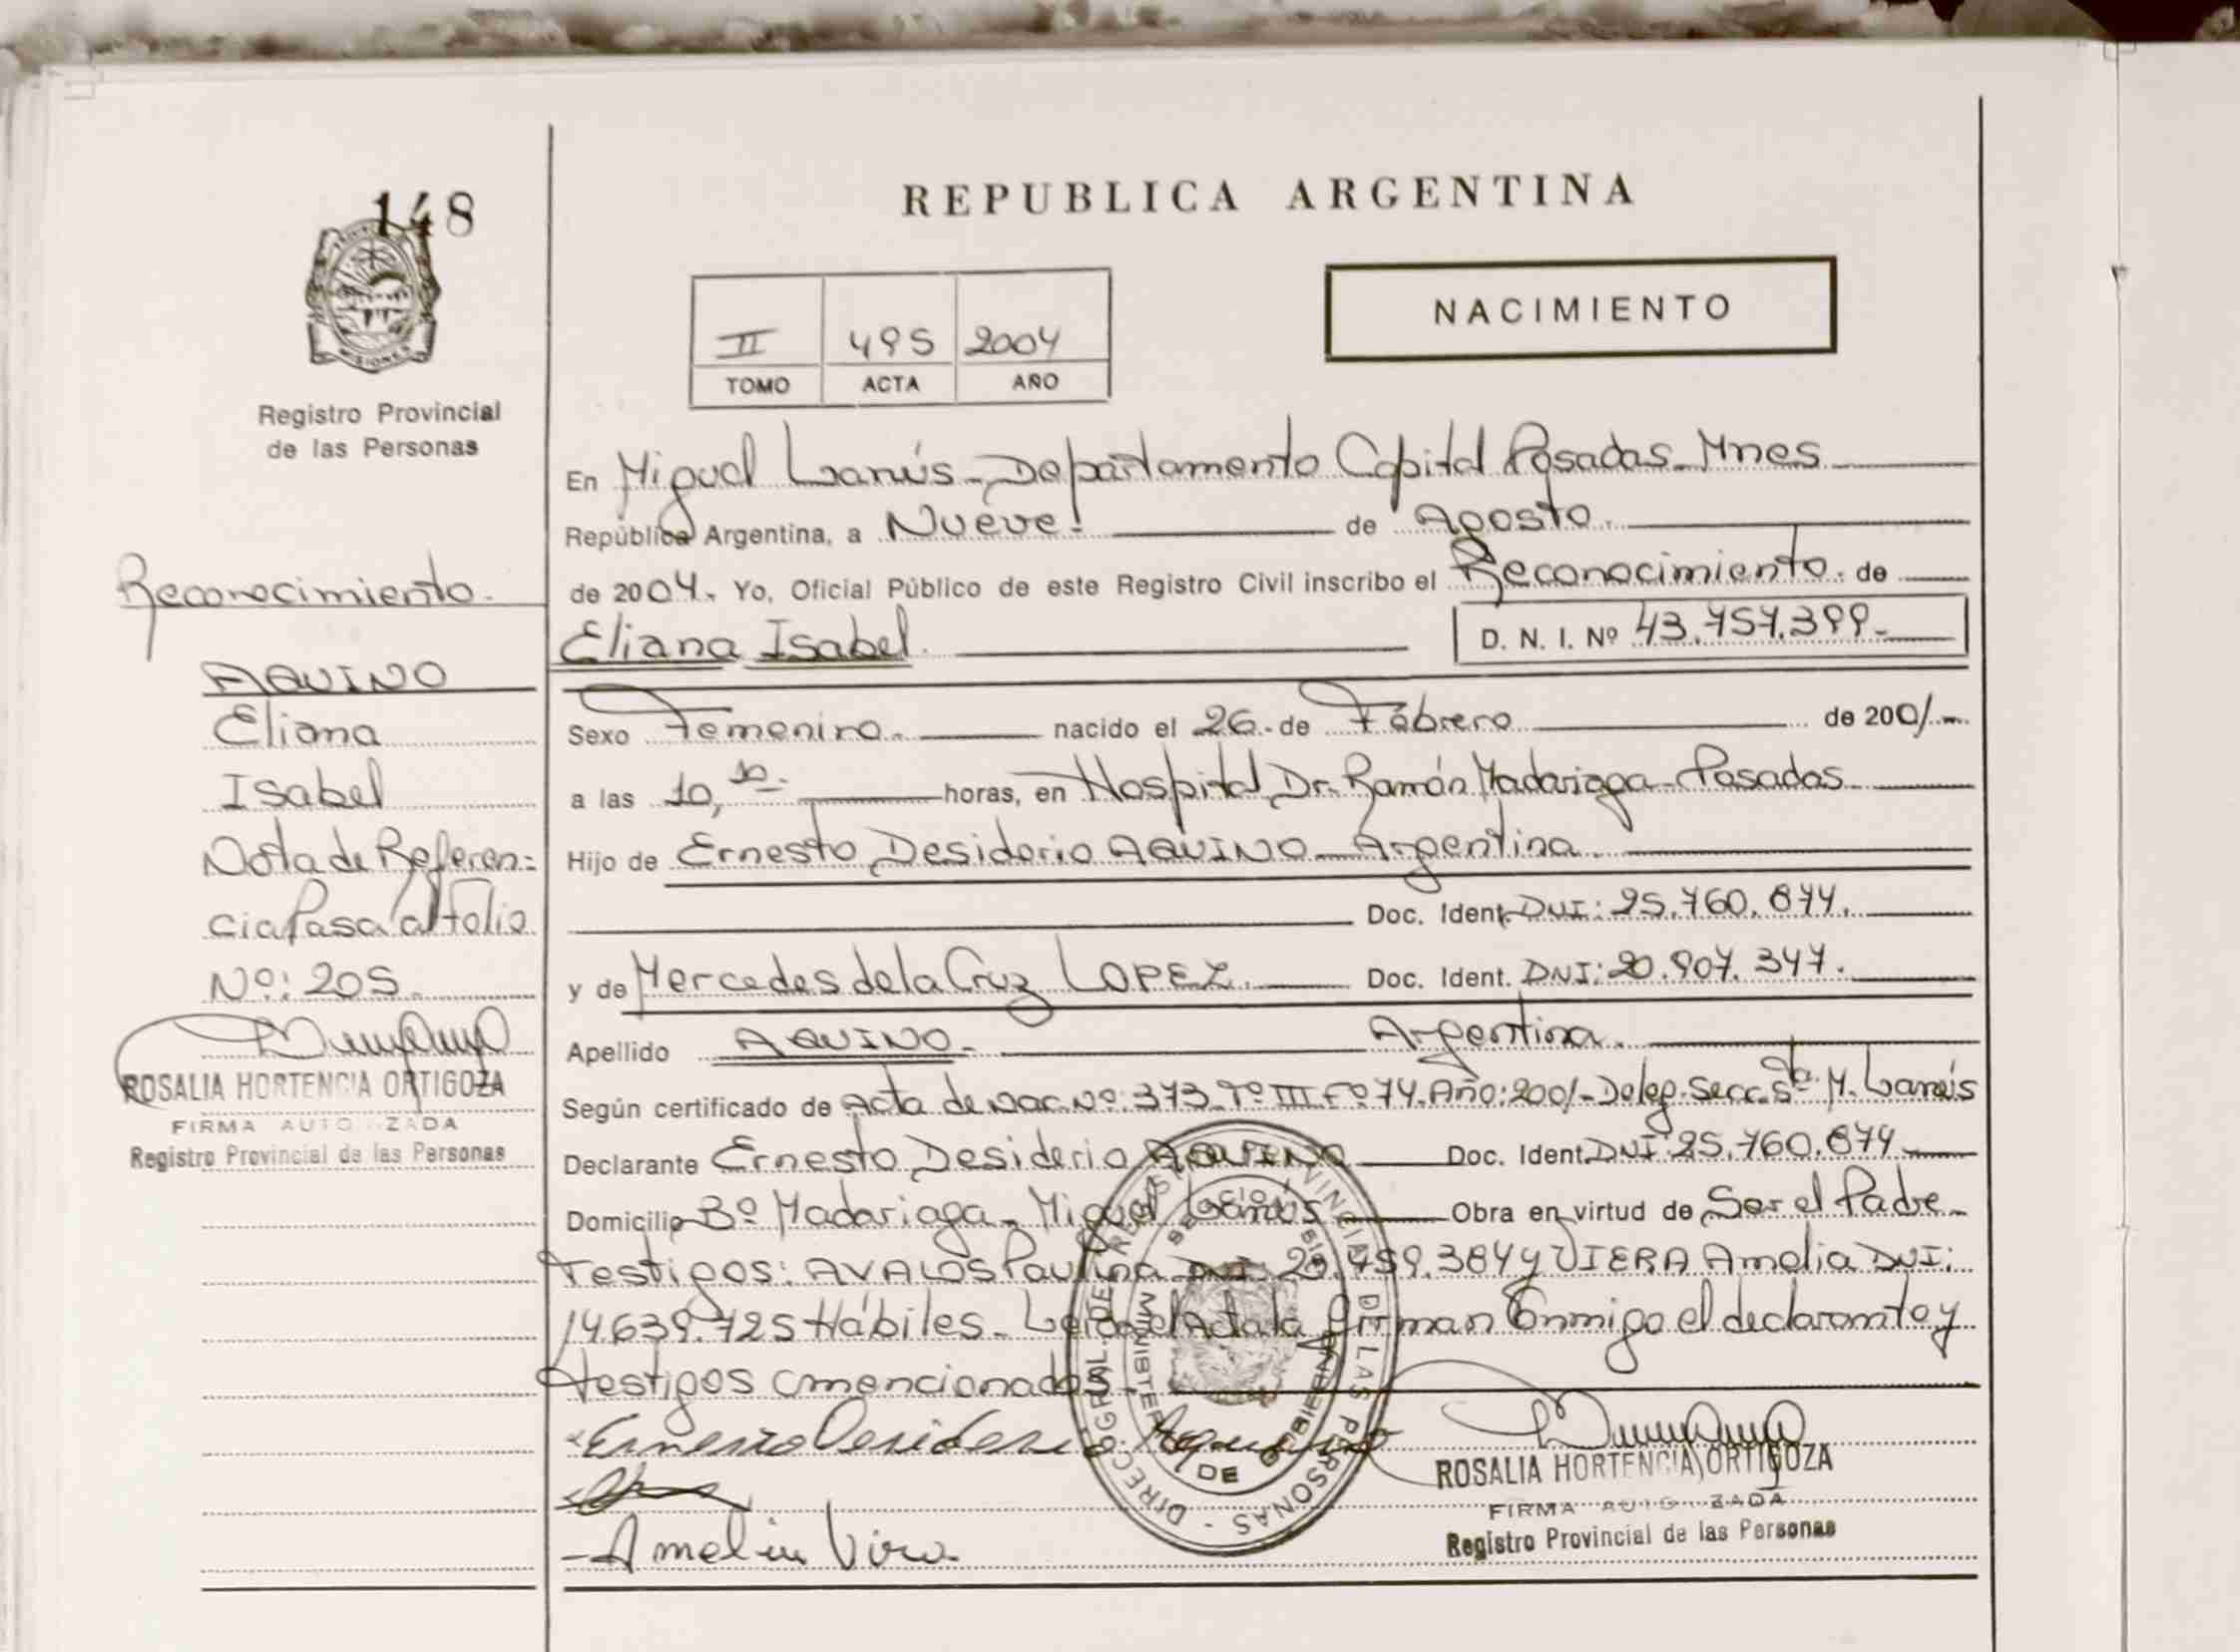 148
REPUBLICA ARGENTINA
NACIMIENTO
II 495 2004
TOMO ACTA AÑO
MISIONES
Registro Provincial
de las Personas
En Miguel Lanús - Departamento Capital Posadas - Mnes
República Argentina, a Nueve. de Agosto.
de 2004. Yo, Oficial Público de este Registro Civil inscribo el Reconocimiento. de
Eliana Isabel. D. N. I. Nº 43.757.399.-
Sexo Femenino. nacido el 26 - de Febrero de 2001.-
a las 10,10- horas, en Hospital Dr. Ramón Madariaga - Posadas
Hijo de Ernesto Desiderio AQUINO - Argentina.
Doc. Ident. DNI: 25.760.874.
y de Mercedes de la Cruz LOPEZ. Doc. Ident. DNI: 20.907.347.
Apellido AQUINO. Argentina.
Según certificado de Acta de Nac. Nº: 373 - Tº III - Fº 74. Año: 2001 - Deleg. Secc. 5ta. M. Lanús
Declarante Ernesto Desiderio AQUINO Doc. Ident. DNI: 25.760.874
Domicilio Bº Madariaga - Miguel Lanús Obra en virtud de Ser el Padre -
Testigos: AVALOS Paulina DNI: 20.459.384 y VIERA Amelia DNI:
14.639.725 Hábiles - Leída el Acta la firman Conmigo el declarante y
testigos mencionados.
Ernesto Desiderio Aquino
Amelia Viera
ROSALIA HORTENCIA ORTIGOZA
FIRMA AUTO ZADA
Registro Provincial de las Personas
Reconocimiento.
AQUINO
Eliana
Isabel
Nota de Referen=
cia Pasa al Folio
Nº: 205.
ROSALIA HORTENCIA ORTIGOZA
FIRMA AUTO ZADA
Registro Provincial de las Personas